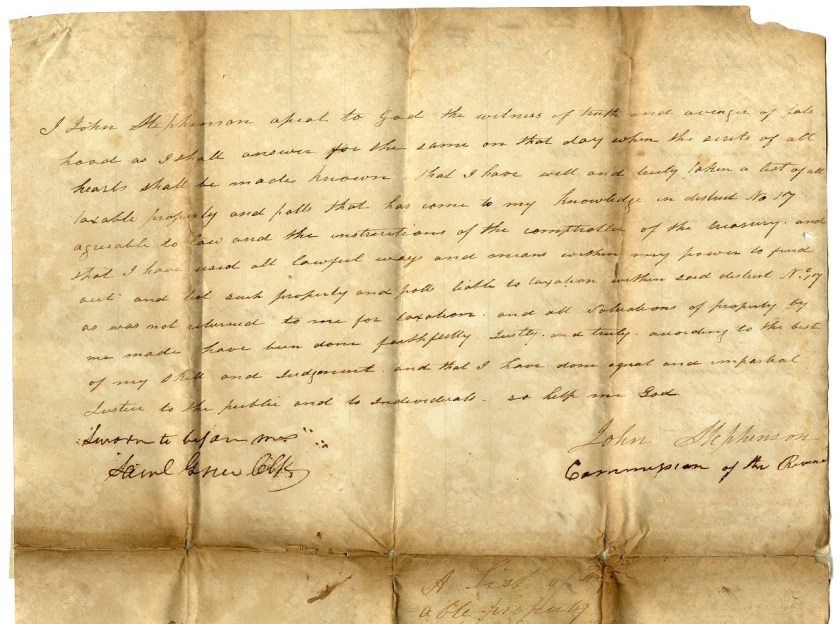 I John Stephenson apeal to God the witness of truth and avenger of fals
hood as I shall answer for the same on that day when the scrits of all
hearts shall be made known that I have well and truly taken a list of all
taxable property and polls that has come to my knowledge in district No 17
agreable to law and the instructions of the comptroller of the treasury. and
that I have used all lawful ways and means within my power to find
out and list such property and polls liable to taxation within said district No 17
as was not returned to me for taxation. and all valuations of property by
me made have been done faithfully. Justly. and truly. acording to the best
of my skill and Judgement. and that I have done equal and impartial
Justice to the public and to individuals. so help me God
Sworn to before me
Clk
John Stephenson
Commission of the Revenue
A List of
able property